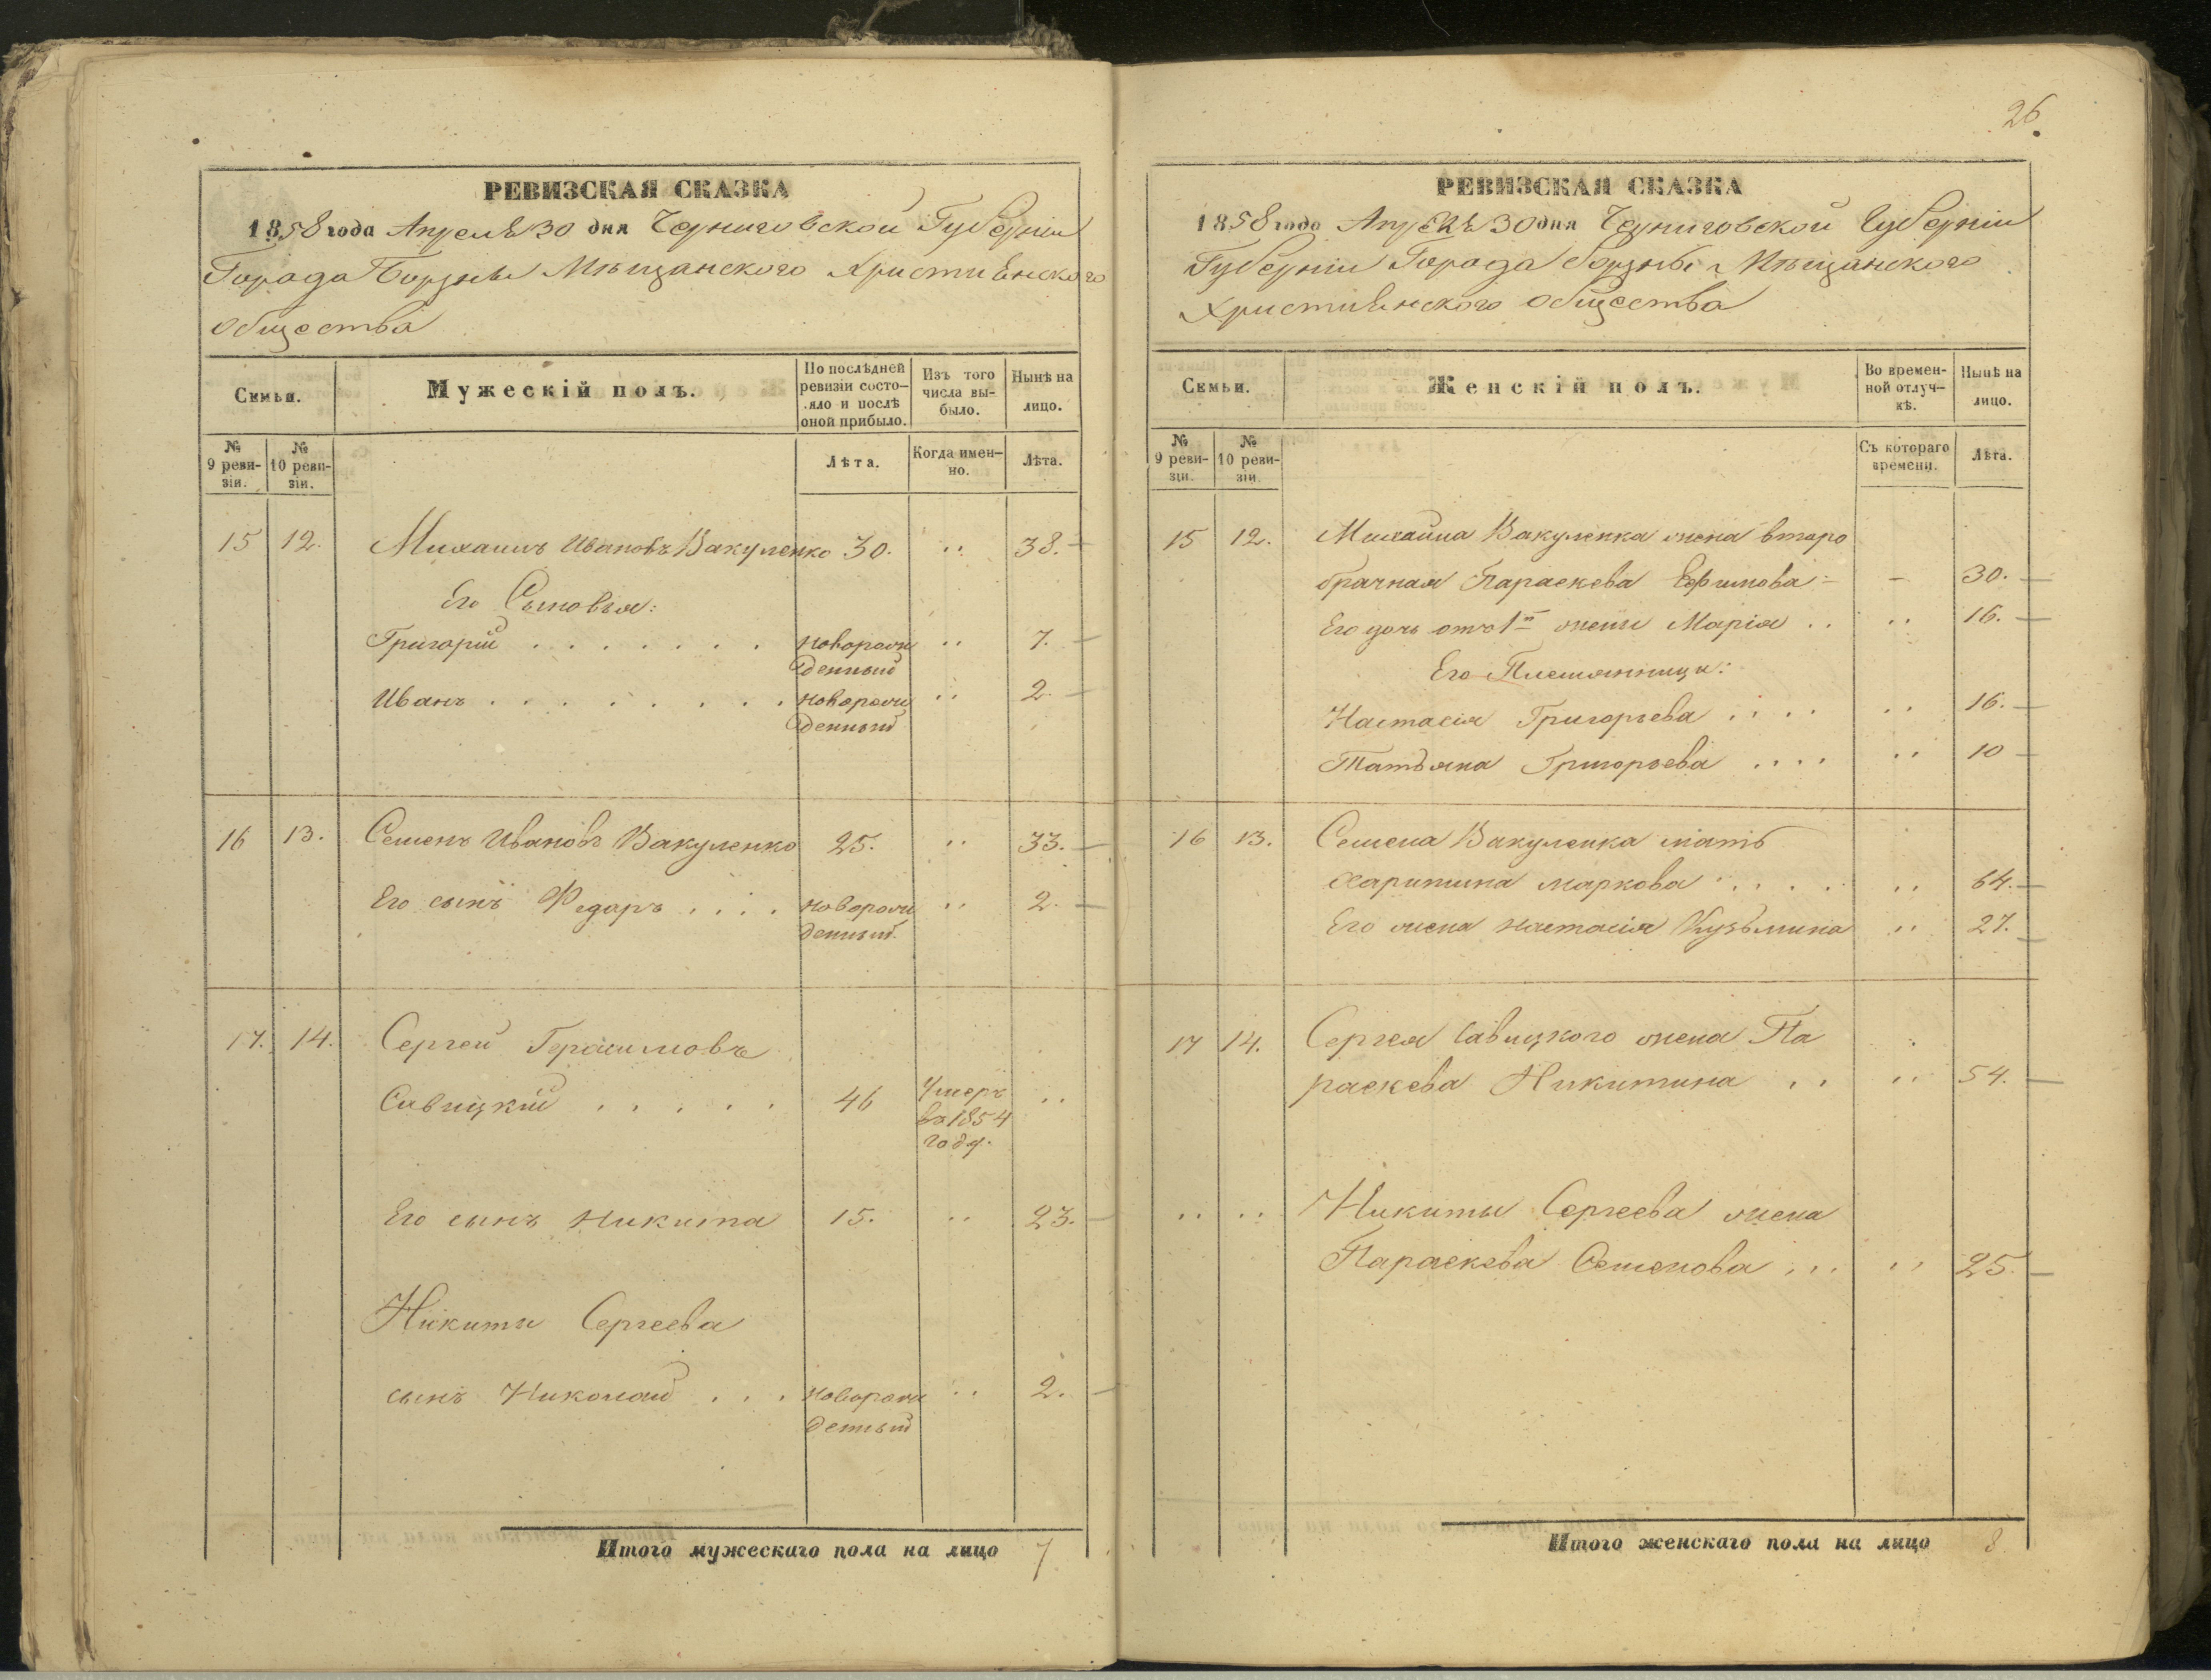 РЕВИЗСКАЯ СКАЗКА
1858 года Апреля 30 дня Черниговской Губерніи
Города Борзны Мѣщанского Християнского
общества
Семьи.
Мужескій полъ.
По послѣдней ревизіи состо-
яло и послѣ оной прибыло.
Изъ того числа вы-
было.
Нынѣ на лицо.
№ 9 реви-
зіи.
№ 10 реви-
зіи.
Лѣта.
Когда имен-
но.
Лѣта.
15 12. Михаилъ Ивановъ Вакуленко 30. .. 38.
Его Сыновья:
Григорій . . . . . . . новорож .. 7.
денный
Иванъ . . . . . . . . новорож .. 2.
денный
16 13. Семенъ Ивановъ Вакуленко 25. .. 33.
Его сынъ Федаръ . . . . новорож .. 2.
денный
17. 14. Сергей Герасимовъ
Савицкий . . . . . 46 Умеръ ..
въ 1854
году.
Его сынъ Никита 15. .. 23.
Никиты Сергеева
сынъ Николай . . . новорож .. 2.
денный
Итого мужескаго пола на лицо 7
26
РЕВИЗСКАЯ СКАЗКА
1858 года Апреля 30 дня Черниговской Губерніи
Губерніи Города Борзны Мѣщанского
Християнского общества
Семьи.
Женскій полъ.
Во времен-
ной отлуч-
кѣ.
Нынѣ на лицо.
№ 9 реви-
зіи.
№ 10 реви-
зіи.
Съ котораго времени.
Лѣта.
15 12. Михайла Вакуленка жена второ
брачная Параскева Ефимова - 30.
Его дочь отъ 1й жены Марія .. .. 16.
Его Племянницы:
Настасія Григорьева . . . . .. 16.
Татьяна Григорьева . . . . .. 10
16 13. Семена Вакуленка мать
Харитина маркова . . . . .. 64.
Его жена настасія Кузьмина .. 27.
17 14. Сергея Савицкого жена Па
раскева Никитина .. .. 54.
.. .. Никиты Сергеева жена
Параскева Семенова ... .. 25.
Итого женскаго пола на лицо 8